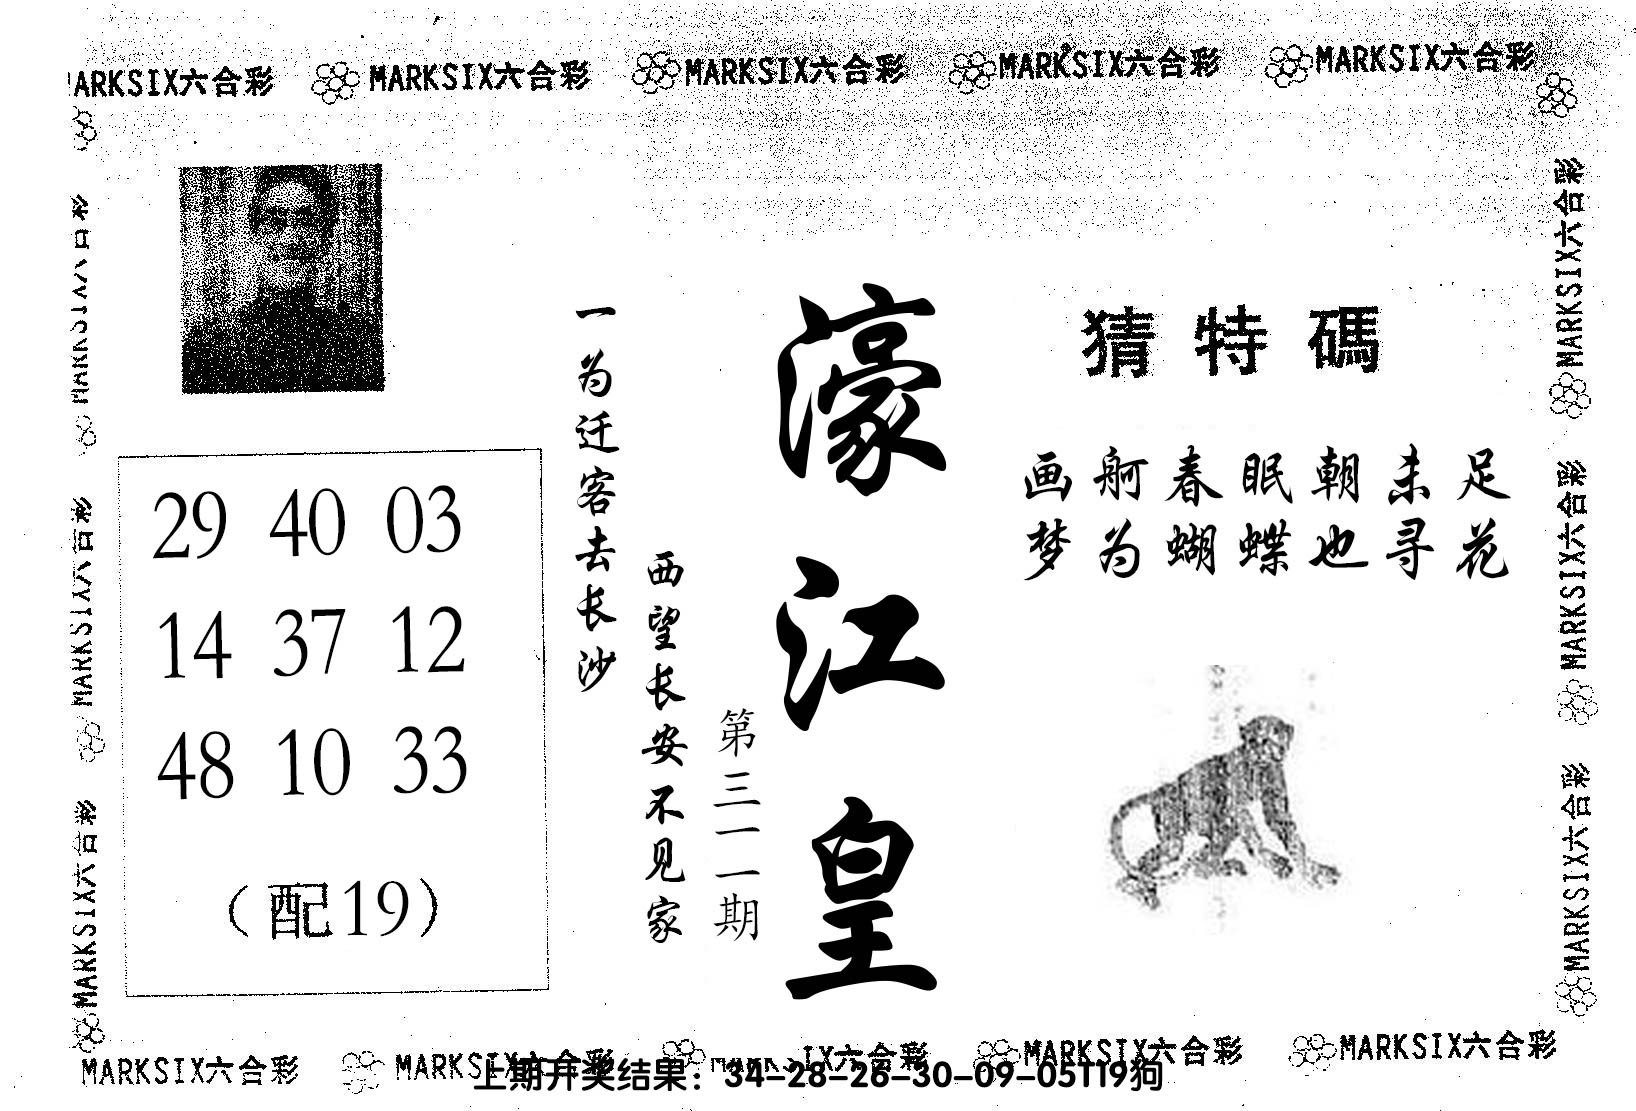 MARKSIX六合彩 MARKSIX六合彩 MARKSIX六合彩 MARKSIX六合彩 MARKSIX六合彩
MARKSIX六合彩
MARKSIX六合彩
MARKSIX六合彩
29 40 03
14 37 12
48 10 33
（配19）
一为迁客去长沙
西望长安不见家
第三一一期
濠江皇
猜特碼
画舸春眠朝未足
梦为蝴蝶也寻花
MARKSIX六合彩
MARKSIX六合彩
MARKSIX六合彩
MARKSIX六合彩 MARKSIX六合彩 MARKSIX六合彩 MARKSIX六合彩 MARKSIX六合彩
上期开奖结果：34-28-26-30-09-05T19狗